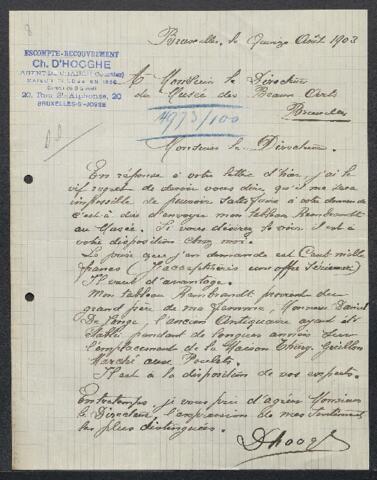 8
Bruxelles, le Quinze Août 1903
ESCOMPTE-RECOUVREMENT
Ch. D'HOOGHE
AGENT DE CHANGE
MAISON FONDÉE EN
20, Rue St Alphonse, 20
BRUXELLES-St JOSSE
A Monsieur le Directeur
du Musée des Beaux Arts
Bruxelles
4973/100
Monsieur le Directeur.
En réponse à votre lettre d'hier, j'ai le
vif regret de devoir vous dire, qu'il me sera
impossible de pouvoir satisfaire à votre demande
c'est à dire d'envoyer mon tableau Rembrandt
au Musée. Si vous désirez le voir il est à
votre disposition chez moi.
Le prix que j'en demande est Cent mille
francs (J'accepterais une offre sérieuse)
Il vaut d'avantage.
Mon tableau Rembrandt provient du
grand père de ma femme, Monsieur Daniel
De, l'ancien Antiquaire ayant été
établi pendant de longues années sur
l'emplacement de la Maison
Marché aux Poulets.
Il est à la disposition de vos experts.
Entretemps, je vous prie d'agréer Monsieur
le Directeur, l'expression de mes sentiments
les plus distingués.
D'hooghe